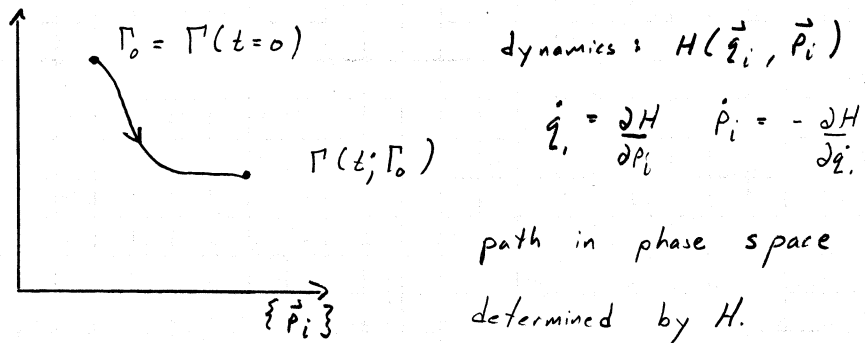 Γ₀ = Γ(t=0)
Γ(t; Γ₀)
{p⃗ᵢ}
dynamics : H(q⃗ᵢ, p⃗ᵢ)
q̇ᵢ = ∂H/∂pᵢ ṗᵢ = - ∂H/∂qᵢ
path in phase space
determined by H.